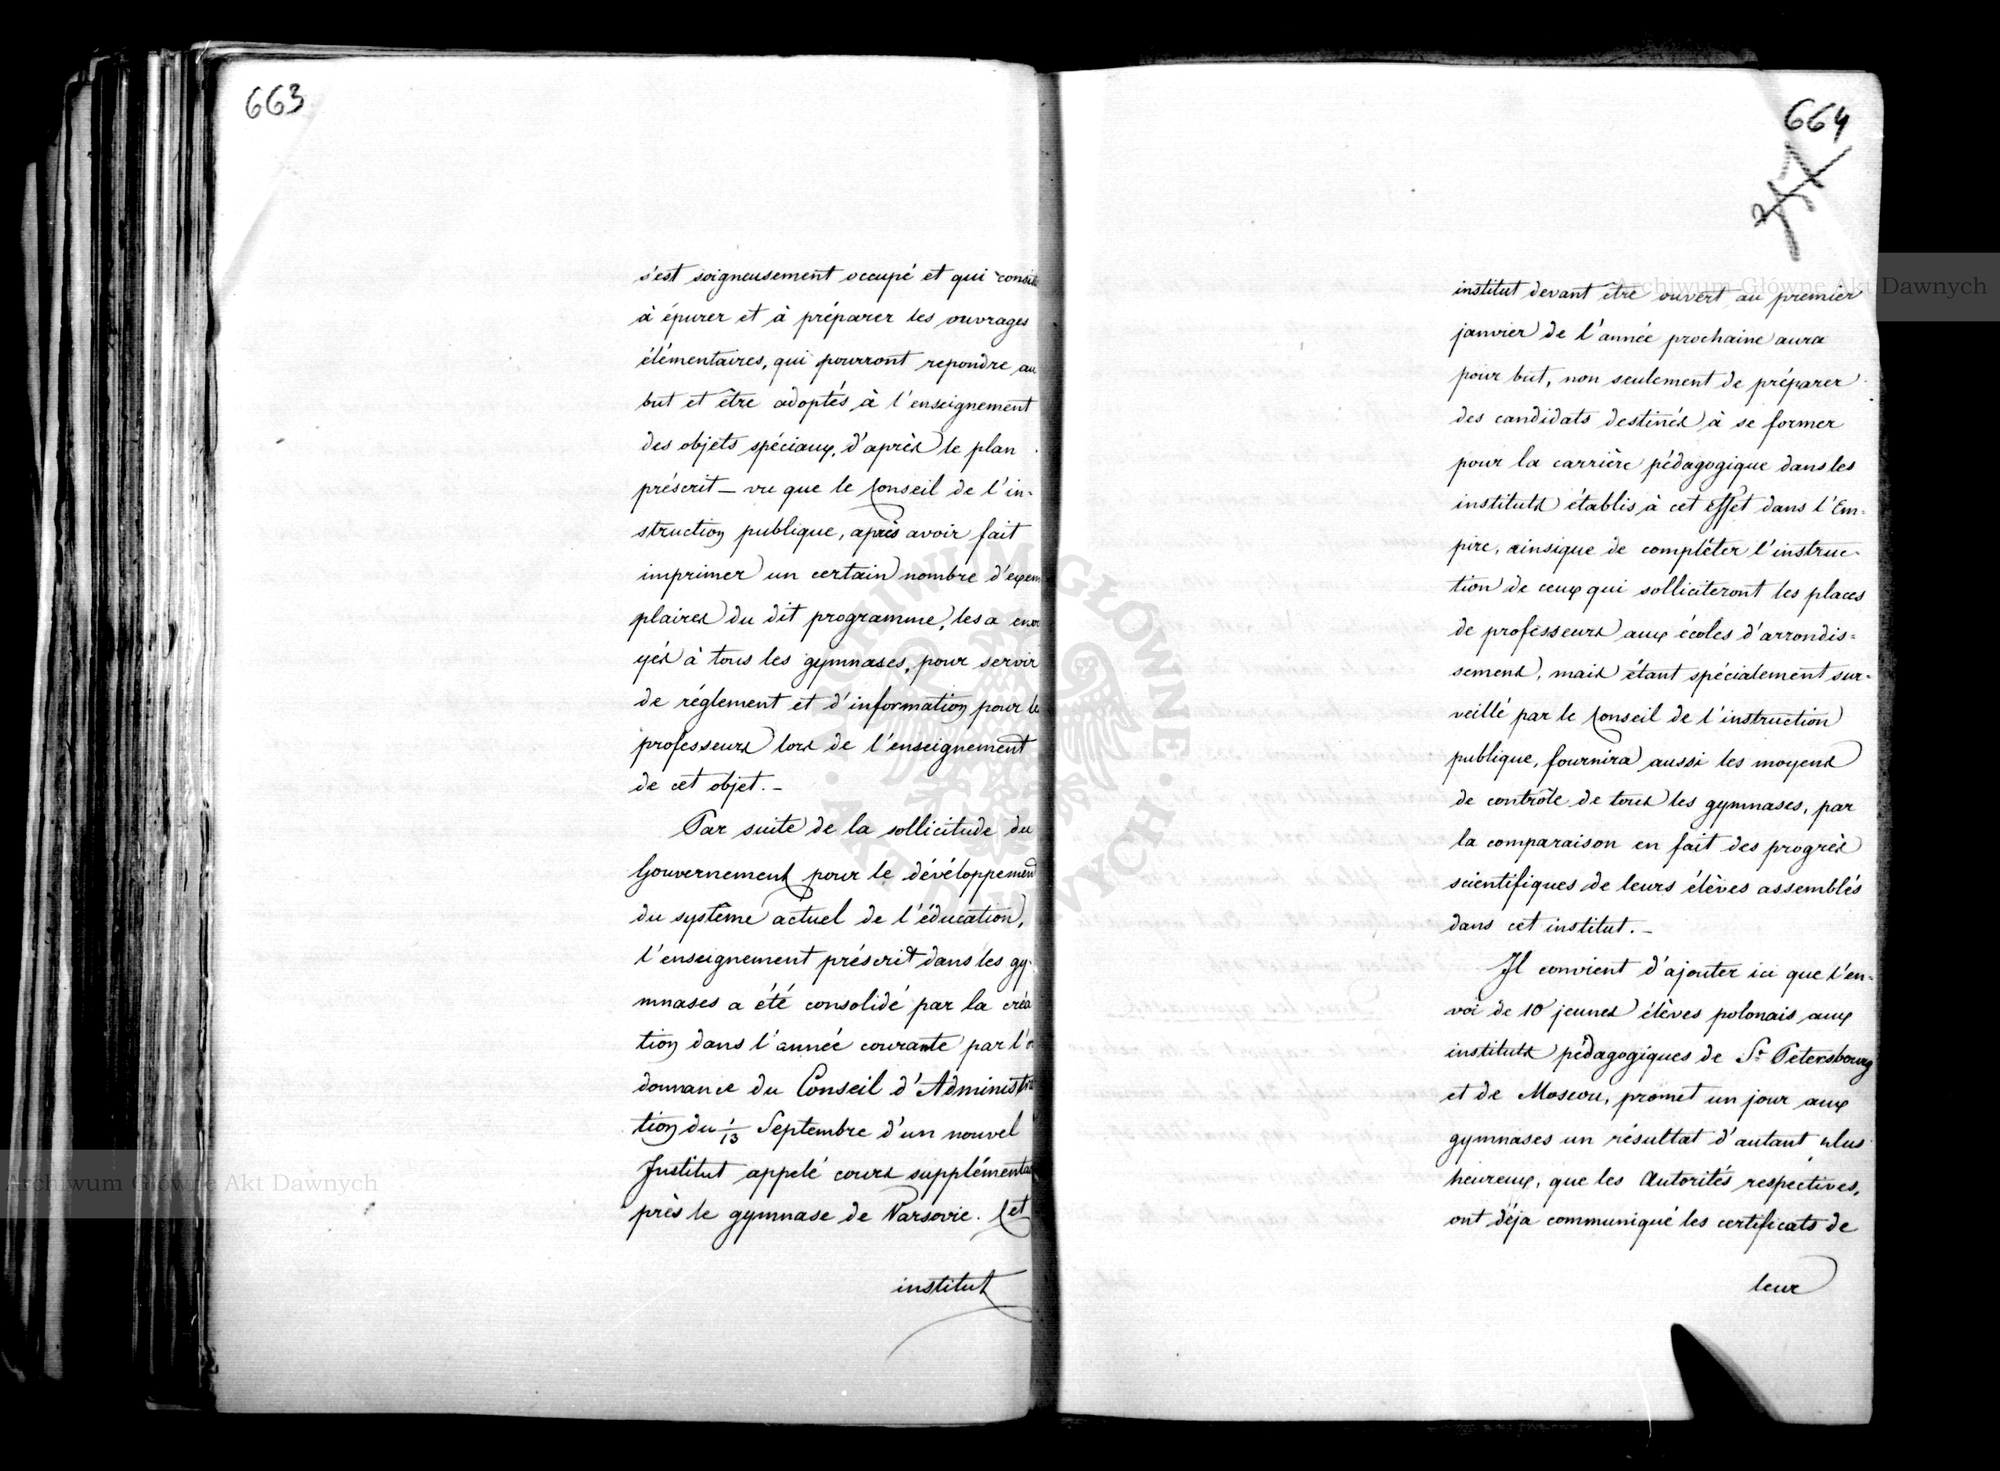 663
s'est soigneusement occupé et qui consis
à épurer et à préparer les ouvrages
élémentaires, qui pourront repondre au
but et être adoptés à l'enseignement
des objets spéciaux, d'après le plan
préscrit — vu que le Conseil de l'in-
struction publique, après avoir fait
imprimer un certain nombre d'exem
plaires du dit programme, les a envo
yés à tous les gymnases, pour servir
de réglement et d'information pour le
professeurs lors de l'enseignement
de cet objet. —
Par suite de la sollicitude du
Gouvernement pour le dévéloppement
du système actuel de l'éducation,
l'enseignement préscrit dans les gy-
mnases a été consolidé par la créa
tion dans l'année courante par l'o
donnance du Conseil d'Administra
tion du 1/13 Septembre d'un nouvel
Institut appelé cours supplémentai
près le gymnase de Varsovie. Cet
institut
664
institut devant être ouvert au premier
janvier de l'année prochaine aura
pour but, non seulement de préparer
des candidats destinés à se former
pour la carrière pédagogique dans les
instituts établis à cet effet dans l'Em-
pire, ainsique de compléter l'instruc-
tion de ceux qui solliciteront les places
de professeurs aux écoles d'arrondis-
sement, mais étant spécialement sur-
veillé par le Conseil de l'instruction
publique, fournira aussi les moyens
de contrôle de tous les gymnases, par
la comparaison en fait des progrès
scientifiques de leurs élèves assemblés
dans cet institut. —
Il convient d'ajouter ici que l'en-
voi de 10 jeunes élèves polonais aux
instituts pédagogiques de St Petersbourg
et de Moscou, promet un jour aux
gymnases un résultat d'autant plus
heureux, que les Autorités respectives,
ont déja communiqué les certificats de
leur
Archiwum Główne Akt Dawnych
Archiwum Główne Akt Dawnych
ARCHIWUM GŁÓWNE AKT DAWNYCH